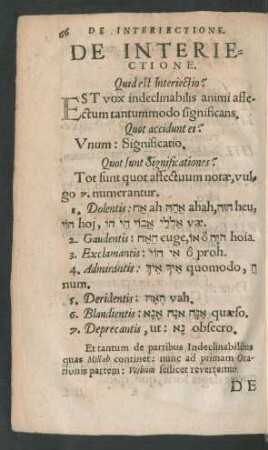 66 DE INTERIECTIONE.
DE INTERIE-
CTIONE.
Quid est Interiectio?
EST vox indeclinabilis animi affe-
ctum tantummodo significans.
Quot accidunt ei?
Vnum: Significatio.
Quot sunt Significationes?
Tot sunt quot affectuum notæ, vul-
go 7. numerantur.
1. Dolentis: אח ah אהה ahah, הוה heu,
הוי hoj, אללי אבוי הי הו væ.
2. Gaudentis: האח euge, או ô הוי hoia.
3. Exclamantis: הוי או ô proh.
4. Admirantis: איך איך quomodo, ה
num.
5. Deridentis: האח vah.
6. Blandientis: אנה אנה אנא quæso.
7. Deprecantis, ut: נא obsecro.
Et tantum de partibus Indeclinabilibus
quas Millah continet: nunc ad primam Ora-
tionis partem: Verbum scilicet revertemur.
DE